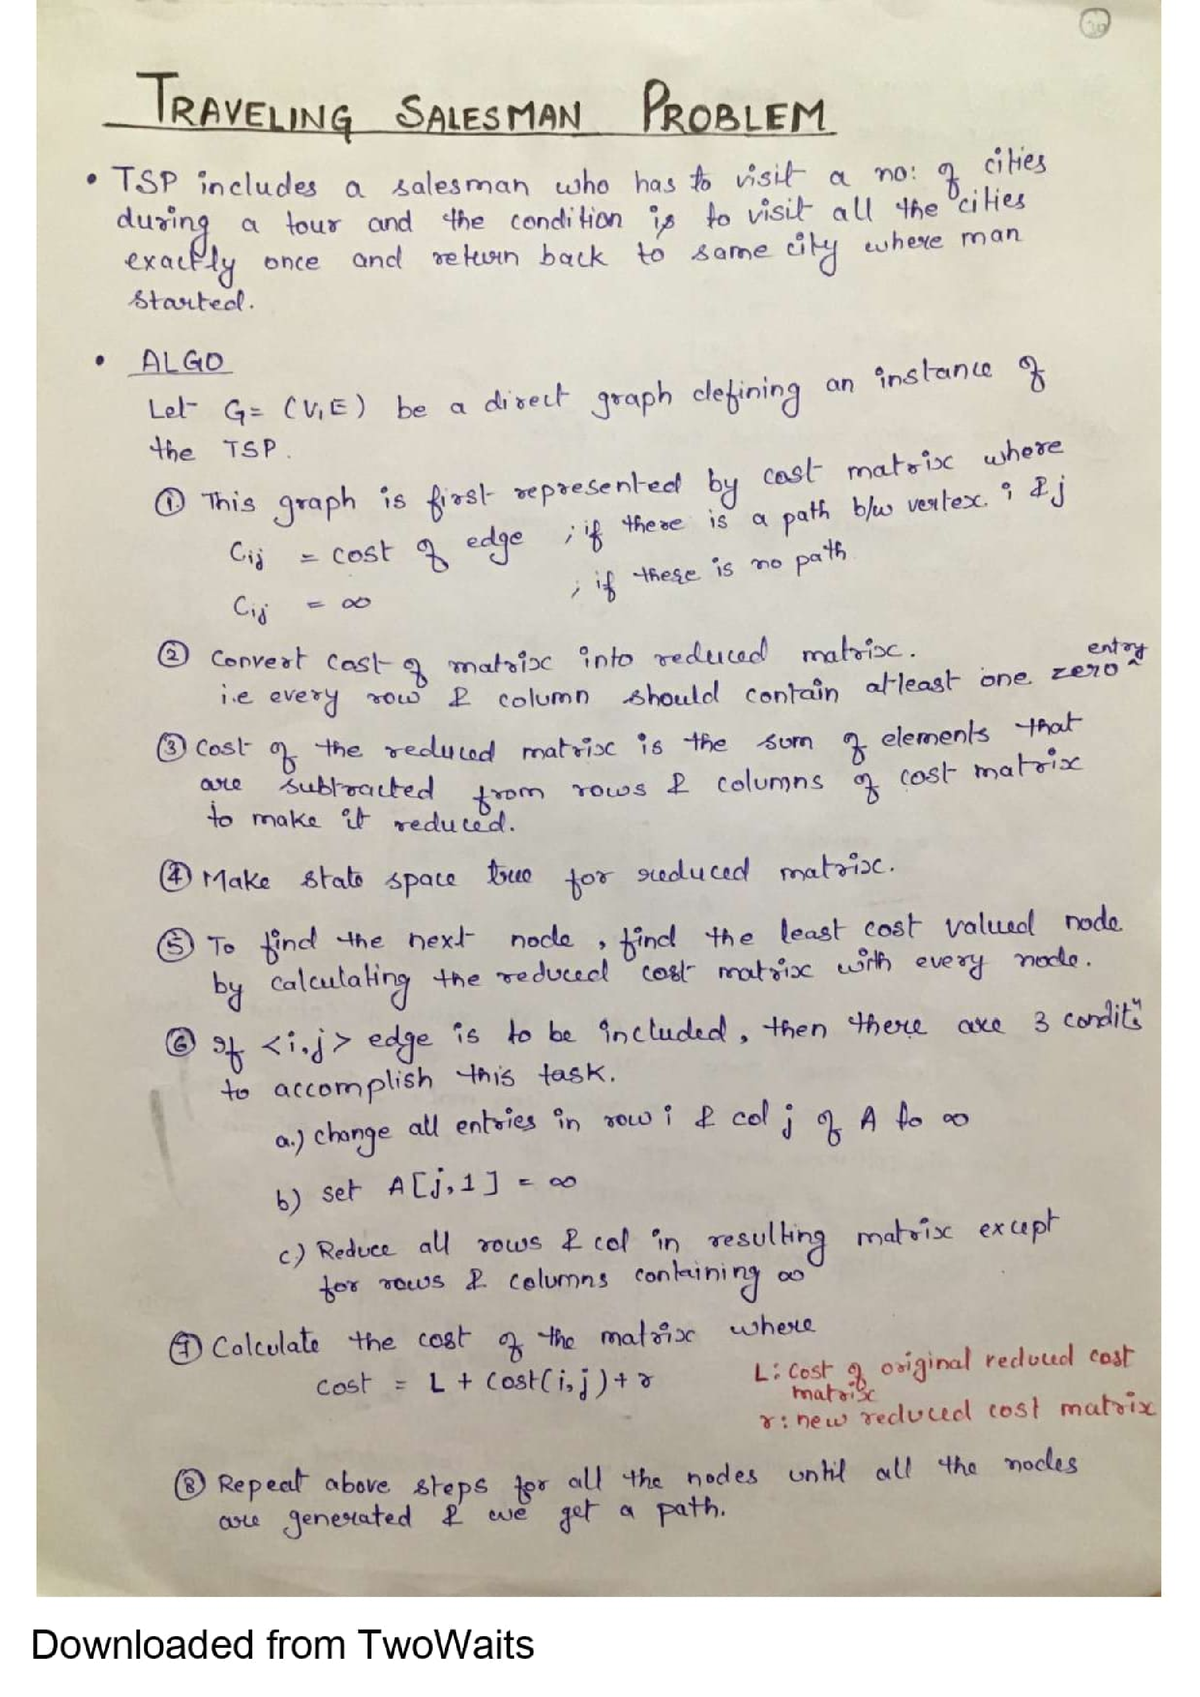 30
TRAVELING SALESMAN PROBLEM
• TSP includes a salesman who has to visit a no: of cities
during a tour and the condition is to visit all the cities
exactly once and return back to same city where man
started.
• ALGO
Let G = (V, E) be a direct graph defining an instance of
the TSP.
① This graph is first represented by cost matrix where
Cij = cost of edge ; if there is a path b/w vertex i & j
Cij = ∞ ; if there is no path
② Convert cost of matrix into reduced matrix.
i.e every row & column should contain atleast one zero ^ entry
③ Cost of the reduced matrix is the sum of elements that
are subtracted from rows & columns of cost matrix
to make it reduced.
④ Make state space tree for reduced matrix.
⑤ To find the next node, find the least cost valued node
by calculating the reduced cost matrix with every node.
⑥ If <i,j> edge is to be included, then there are 3 conditn
to accomplish this task.
a.) change all entries in row i & col j of A to ∞
b) set A[j,1] = ∞
c.) Reduce all rows & col in resulting matrix except
for rows & columns containing ∞
⑦ Calculate the cost of the matrix where
cost = L + cost(i,j) + r
L: cost of original reduced cost
matrix
r: new reduced cost matrix
⑧ Repeat above steps for all the nodes until all the nodes
are generated & we get a path.
Downloaded from TwoWaits